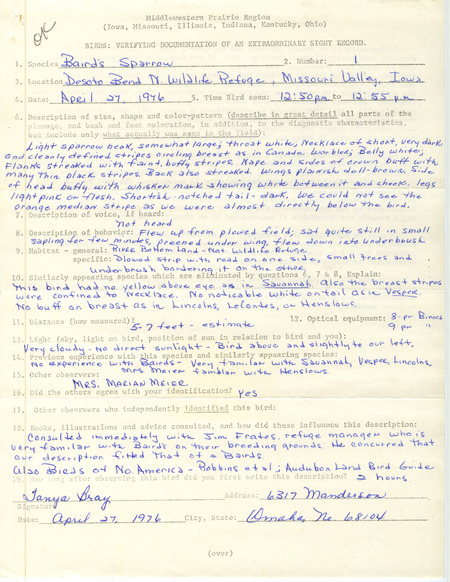 OK
Midwestern Prairie Region
(Iowa, Missouri, Illinois, Indiana, Kentucky, Ohio)
BIRDS: VERIFYING DOCUMENTATION OF AN EXTRAORDINARY SIGHT RECORD.
1. Species Baird's Sparrow 2. Number: 1
3. Location Desoto Bend N Wildlife Refuge, Missouri Valley, Iowa
4. Date: April 27, 1976 5. Time Bird seen: 12:50 pm to 12:55 pm
6. Description of size, shape and color-pattern (describe in great detail all parts of the
plumage, and beak and feet coloration, in addition, to the diagnostic characteristics,
but include only what actually was seen in the field):
Light sparrow beak, somewhat large; throat white; Necklace of short, very dark
and cleanly defined stripes circling breast as in Canada Warbler; Belly white;
Flanks streaked with faint, buffy stripes. Nape and sides of crown buff with
many thin black stripes. Back also streaked. Wings plainish dull-brown. Side
of head buffy with whisker mark showing white between it and cheek. legs
light pink or flesh. Shortish-notched tail-dark. We could not see the
orange median stripe as we were almost directly below the bird.
7. Description of voice, if heard:
Not heard
8. Description of behavior: Flew up from plowed field; sat quite still in small
sapling for few minutes, preened under wing, flew down into underbrush
9. Habitat - general: River Bottom Land - Nat. Wildlife Refuge
specific: Plowed strip with road on one side, small trees and
underbrush bordering it on the other.
10. Similarly appearing species which are eliminated by questions 6, 7 & 8, Explain:
This bird had no yellow above eye as in Savannah. Also the breast stripes
were confined to necklace. No noticable white on tail as in Vesper.
No buff on breast as in Lincolns, LeContes, or Henslows.
11. Distance (how measured)? 5-7 feet - estimate 12. Optical equipment: 8-pr Binocs
9 pr "
13. Light (sky, light on bird, position of sun in relation to bird and you):
Very cloudy - no direct sunlight - Bird above and slightly to our left,
14. Previous experience with this species and similarly appearing species:
No experience with Bairds - Very familiar with Savannah, Vesper, Lincolns,
Mrs Meier familiar with Henslows.
15. Other observers:
Mrs. Marian Meier
16. Did the others agree with your identification? yes
17. Other observers who independently identified this bird:
18. Books, illustrations and advice consulted, and how did these influence this description:
Consulted immediately with Jim Frates, refuge manager who is
very familiar with Bairds on their breeding grounds. He concurred that
our description fitted that of a Bairds.
Also Birds of No. America - Robbins et al; Audubon Land Bird Guide
19. How long after observing this bird did you first write this description? 2 hours
Tanya Bray Address: 6317 Manderson
Signature
Date: April 27, 1976 City, State: Omaha, Ne. 68104
(over)